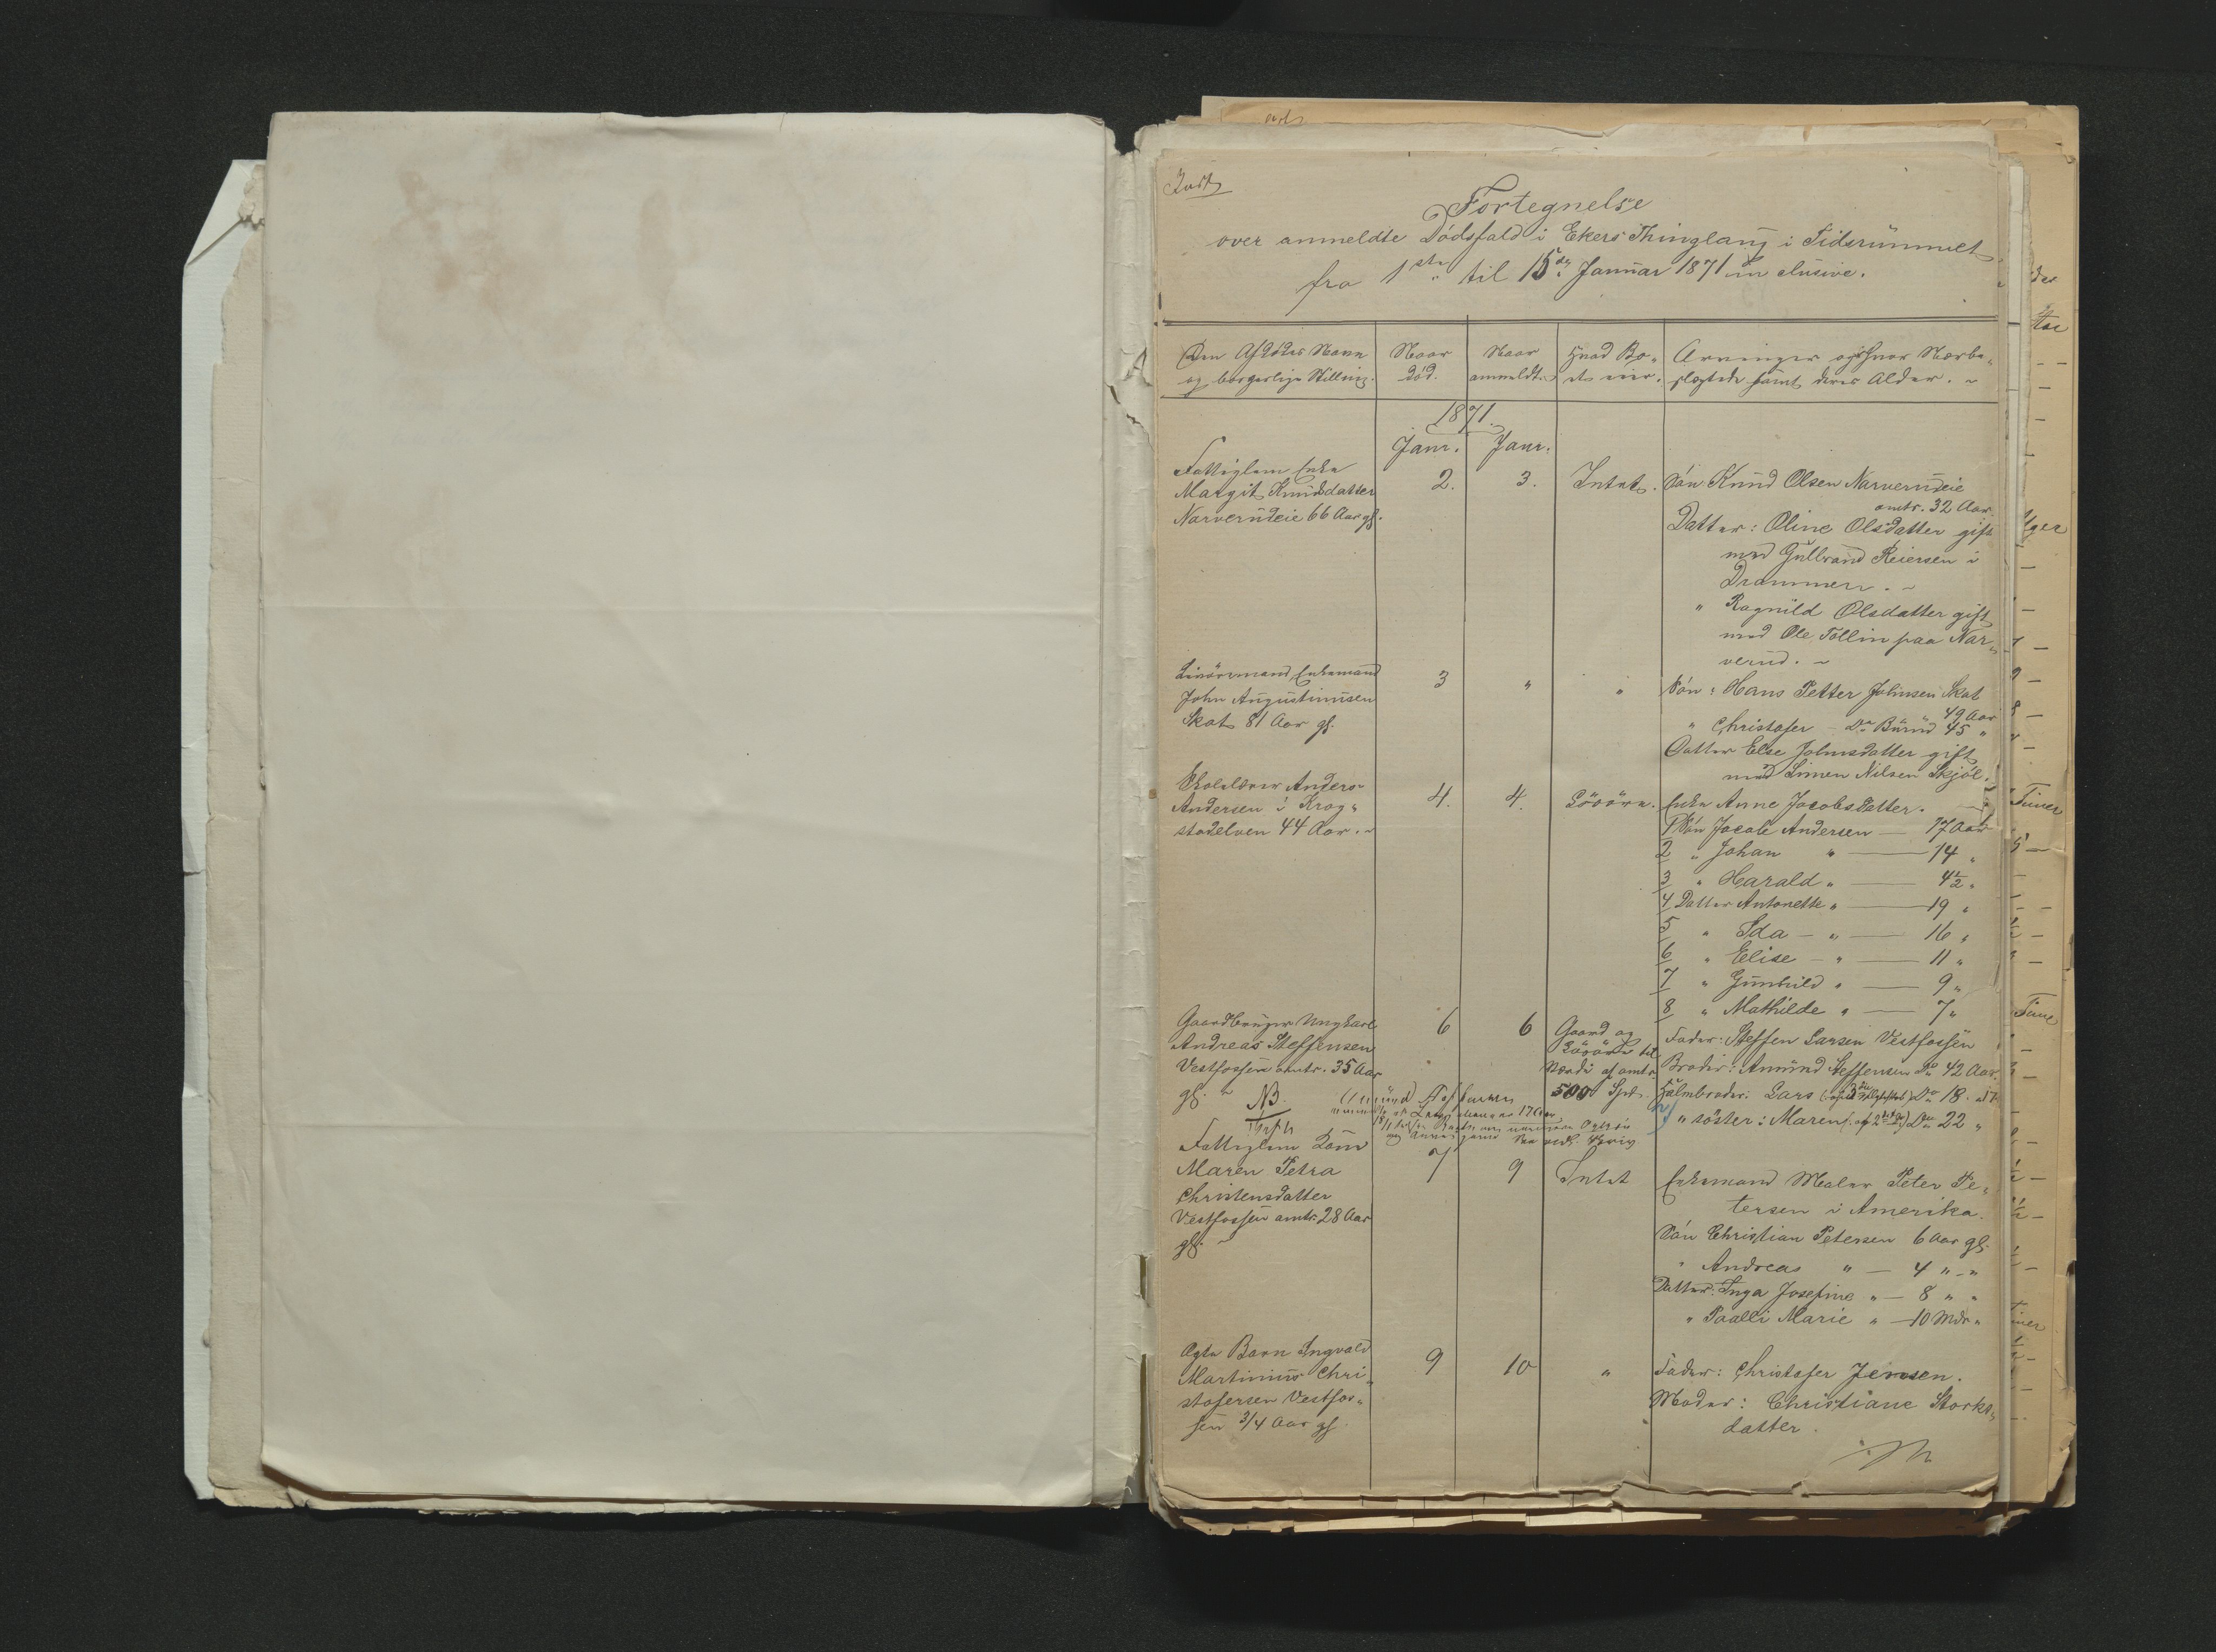 Fortegnelse
over anmeldte Dødsfald i Ekers Thinglaug i Tidsrummet
fra 1ste til 15de Januar 1871 inclusive.
Den Afdødes Navn
og borgerlige Stilling.
Naar
død.
Naar
anmeldt.
Hvad Bo-
et eier.
Arvinger og Nærbe-
slægtede samt deres Alder.
1871.
Janr. Janr.
Fattiglem Enke
Margit Knudsdatter
Narverudeie 66 Aar gl.
2. 3. Intet.
Søn Knud Olsen Narverudeie
omtr. 32 Aar.
Datter: Oline Olsdatter gift
med Gulbrand Reiersen i
Drammen.
" Ragnild Olsdatter gift
med Ole Tollin paa Nar-
verud.
Enkemand
John Augustinusen
Skat 81 Aar gl.
3 " "
Søn: Hans Petter Johnsen Skat
49 Aar
" Christofer — Do Burud 45 "
Datter Else Johnsdatter gift
med Simen Nilsen Skjøl.
Skolelærer Anders
Andersen i Krog-
stadelven 44 Aar.
4. 4. Løsøre.
Enke Anne Jacobsdatter.
1 Søn Jacob Andersen — 17 Aar
2 " Johan " — 14 "
3 " Harald " — 4½ "
4 Datter Antonette " — 19 "
5 " Ida — " — 16 "
6 " Elise — " — 11 "
7 " Gunhild " — 9 "
8 " Mathilde " — 7 "
Gaardbruger Ungkarl
Andreas Steffensen
Vestfossen omtr. 35 Aar
gl.
6 6 Gaard og
Løsøre til
Værdi af omtr.
500 Spd.
Fader: Steffen Larsen Vestfossen
Broder: Amund Steffensen Do 42 Aar.
Halvbroder: Lars Do 18
" søster: Maren Do 22 "
NB.
Fattiglem Kone
Maren Petra
Christensdatter
Vestfossen omtr. 28 Aar
gl.
7 9 Intet
Enkemand Maler Peter Pe-
tersen i Amerika.
Søn Christian Petersen 6 Aar gl.
" Andreas " — 4 " — "
Datter: Inga Josefine " — 8 " "
" Paalli Marie " — 10 Mdr "
Ægte Barn Ingvald
Martinius Chri-
stofersen Vestfos-
sen 3/4 Aar gl.
9 10 "
Fader: Christofer Jensen.
Moder: Christiane Storks-
datter.